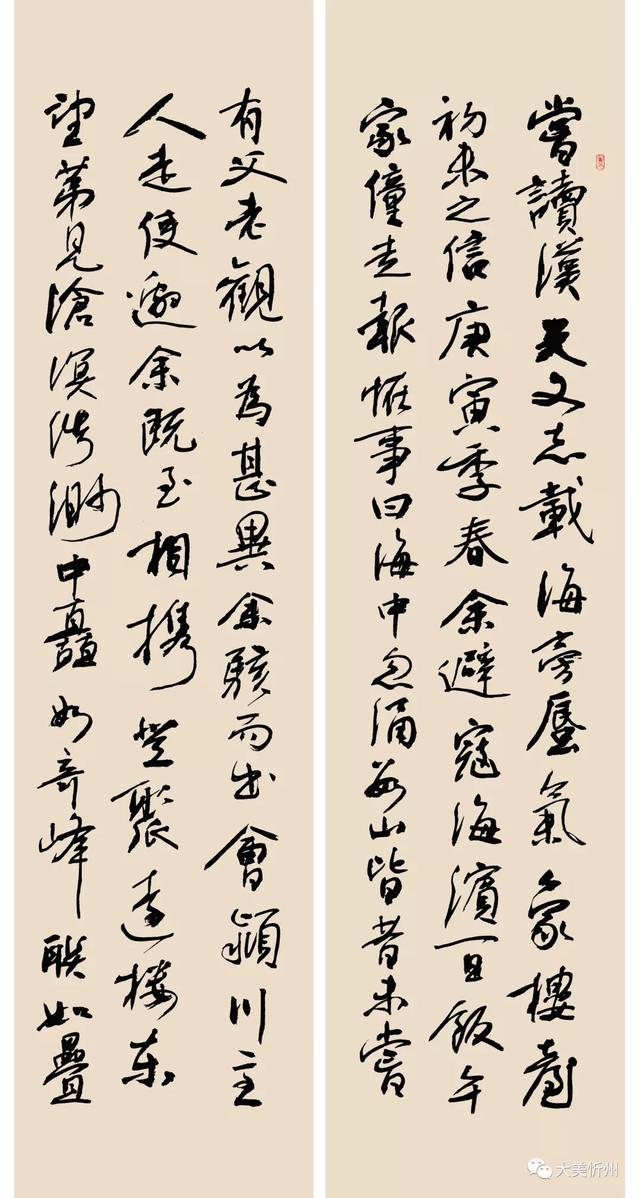 嘗讀漢天文志載海旁蜃氣象樓臺
初未之信庚寅季春余避寇海濱一日飯午
家僮走報恠事曰海中忽涌數山皆昔未嘗
有父老觀以為甚異余駭而出會潁川主
人走使邀余既至相携登聚遠樓東
望第見滄溟浩渺中矗如奇峰聯如疊
大美忻州